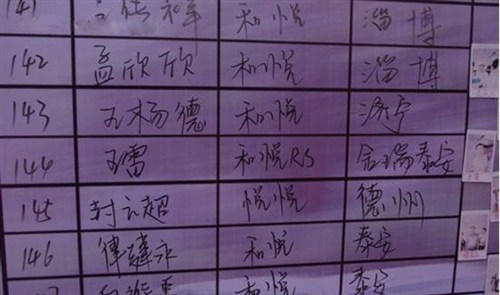 141 和悦 淄博
142 孟欣欣 和悦 淄博
143 王杨德 和悦 济宁
144 王雷 和悦RS 金瑞泰安
145 封云超 悦悦 德州
146 和悦 泰安
泰安